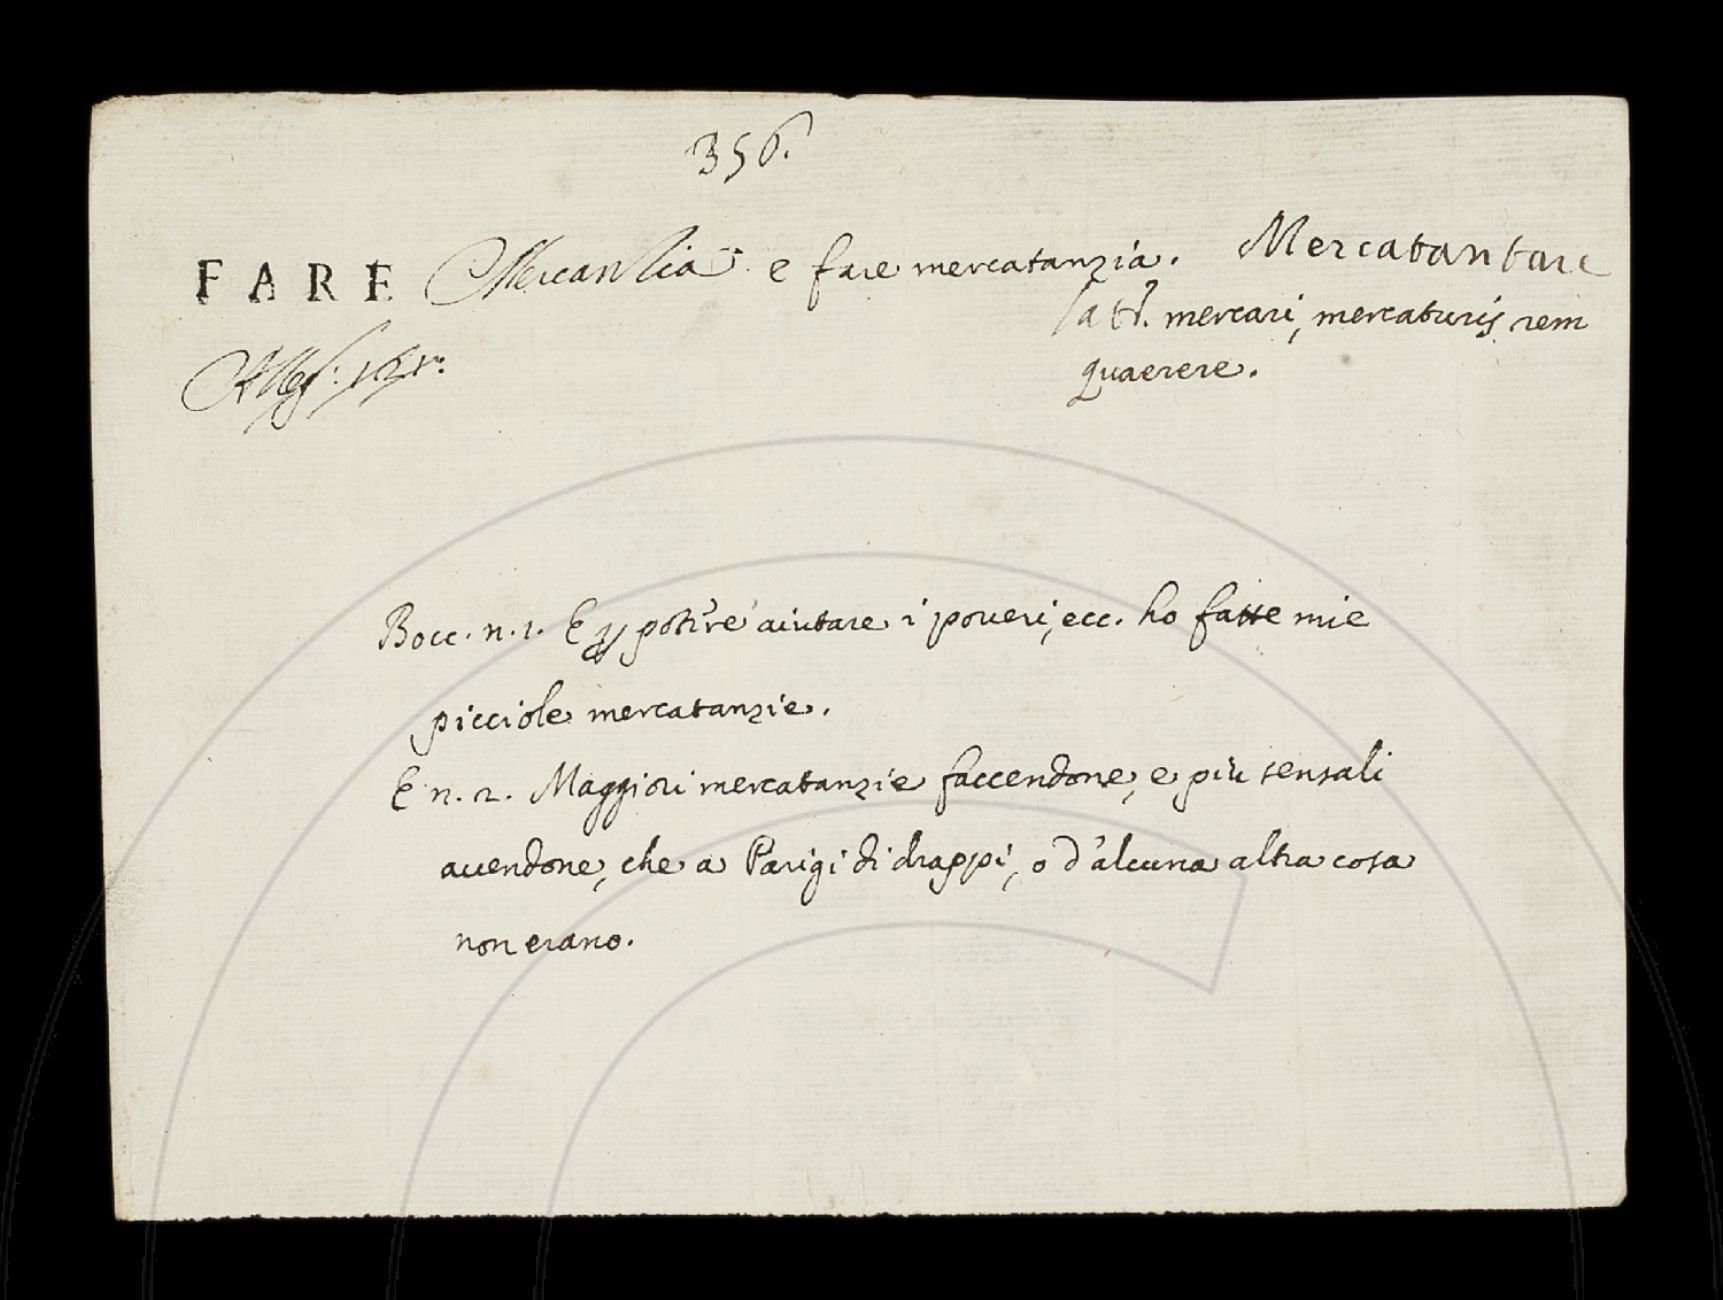 356.
FARE Mercanzia e fare mercatanzia. Mercatantare
latt. mercari, mercaturis rem
Alleg: 121.
quaerere.
Bocc. n. 1. E p potere aiutare i poveri, ecc. ho fatte mie
picciole mercatanzie.
E n. 2. Maggiori mercatanzie faccendone, e più sensali
avendone, che a Parigi di drappi, o d'alcuna altra cosa
non erano.